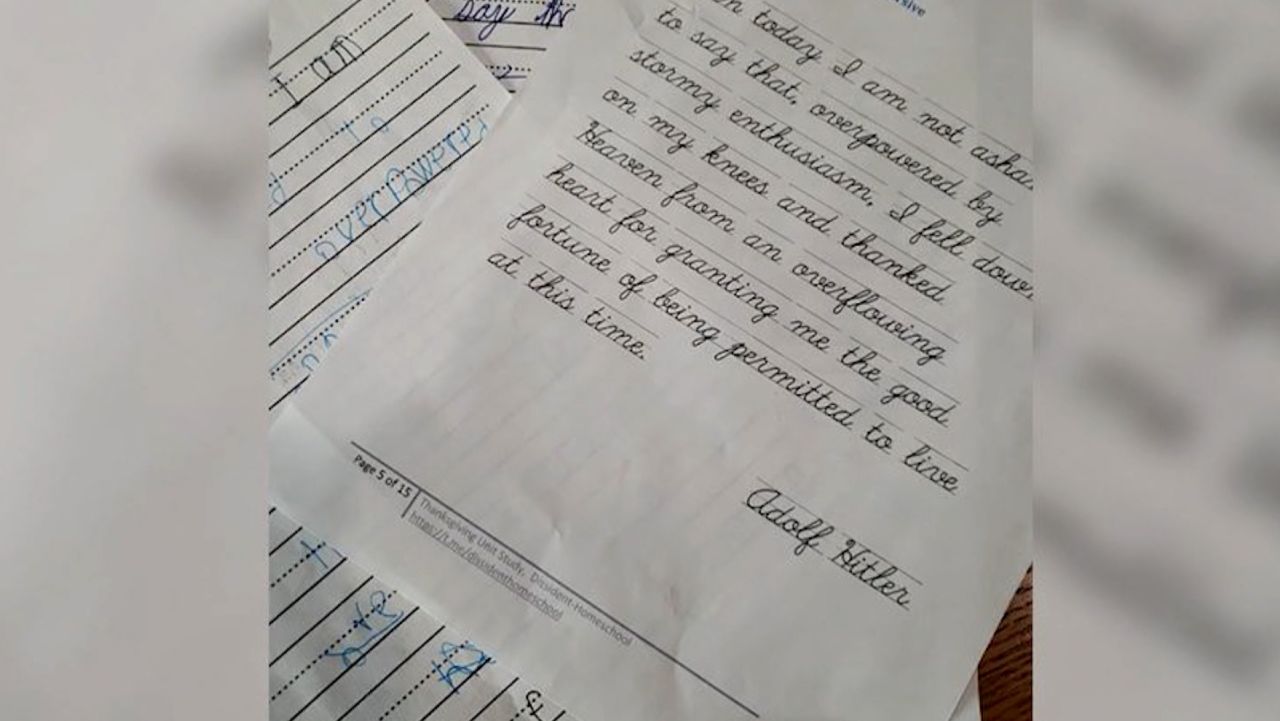 say the
I am
to
overpowered
rsive
n today I am not asha
to say that, overpowered by
stormy enthusiasm, I fell down
on my knees and thanked
Heaven from an overflowing
heart for granting me the good
fortune of being permitted to live
at this time.
Adolf Hitler
Page 5 of 15
Thanksgiving Unit Study, Dissident-Homeschool
https://t.me/dissidenthomeschool